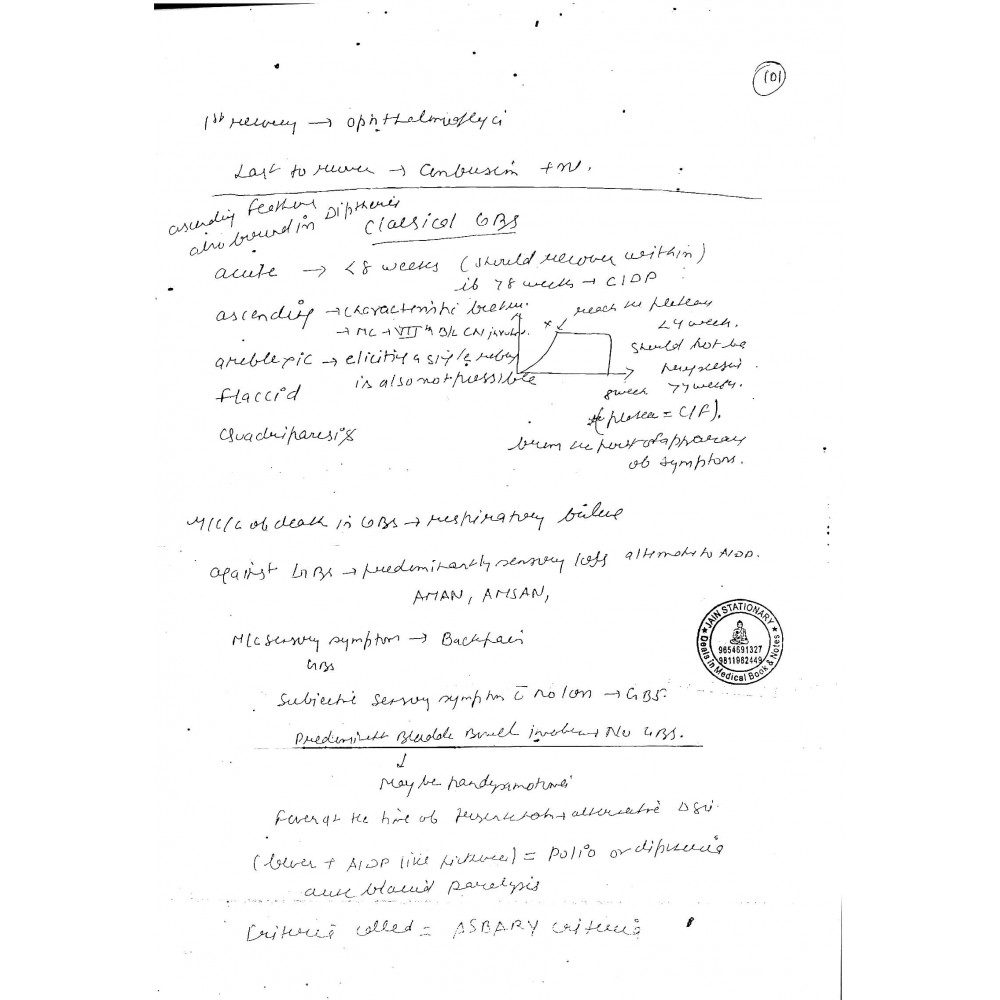 101
1st recovery → ophthalmoplegi
Last to recover → Confusion + n.
ascending feature
also found in Diptheria
Classical GBS
acute → <8 weeks (should recover within)
if >8 weeks → CIDP
ascending → characteristic feature.
→ MC → VII th B/L CN involve.
reach the plateau
<4 week.
should not be
progressi
>4 weeks.
areflexic → eliciting a single reflex
is also not possible
8 week
flaccid
(plateau = C/F).
Quadriparesis
from the post of appearay
of symptom.
M/C/C of death in GBS → respiratory failure
against GBS → predominantly sensory loss alternate to AIDP.
AMAN, AMSAN,
M/C sensory symptom → Backpain
GBS
Subjective sensory symptom c̄ no loss → GBS.
Predominant Bladder Bowel involve → No GBS.
↓
May be pandysautonomi
Fever at the time of presentation → alternative
(fever + AIDP like picture) = Polio or diptheria
acute flaccid paralysis
Criteria called = ASBARY criteria
JAIN STATIONARY
9654691327
9811982449
Deals in Medical Book & Notes